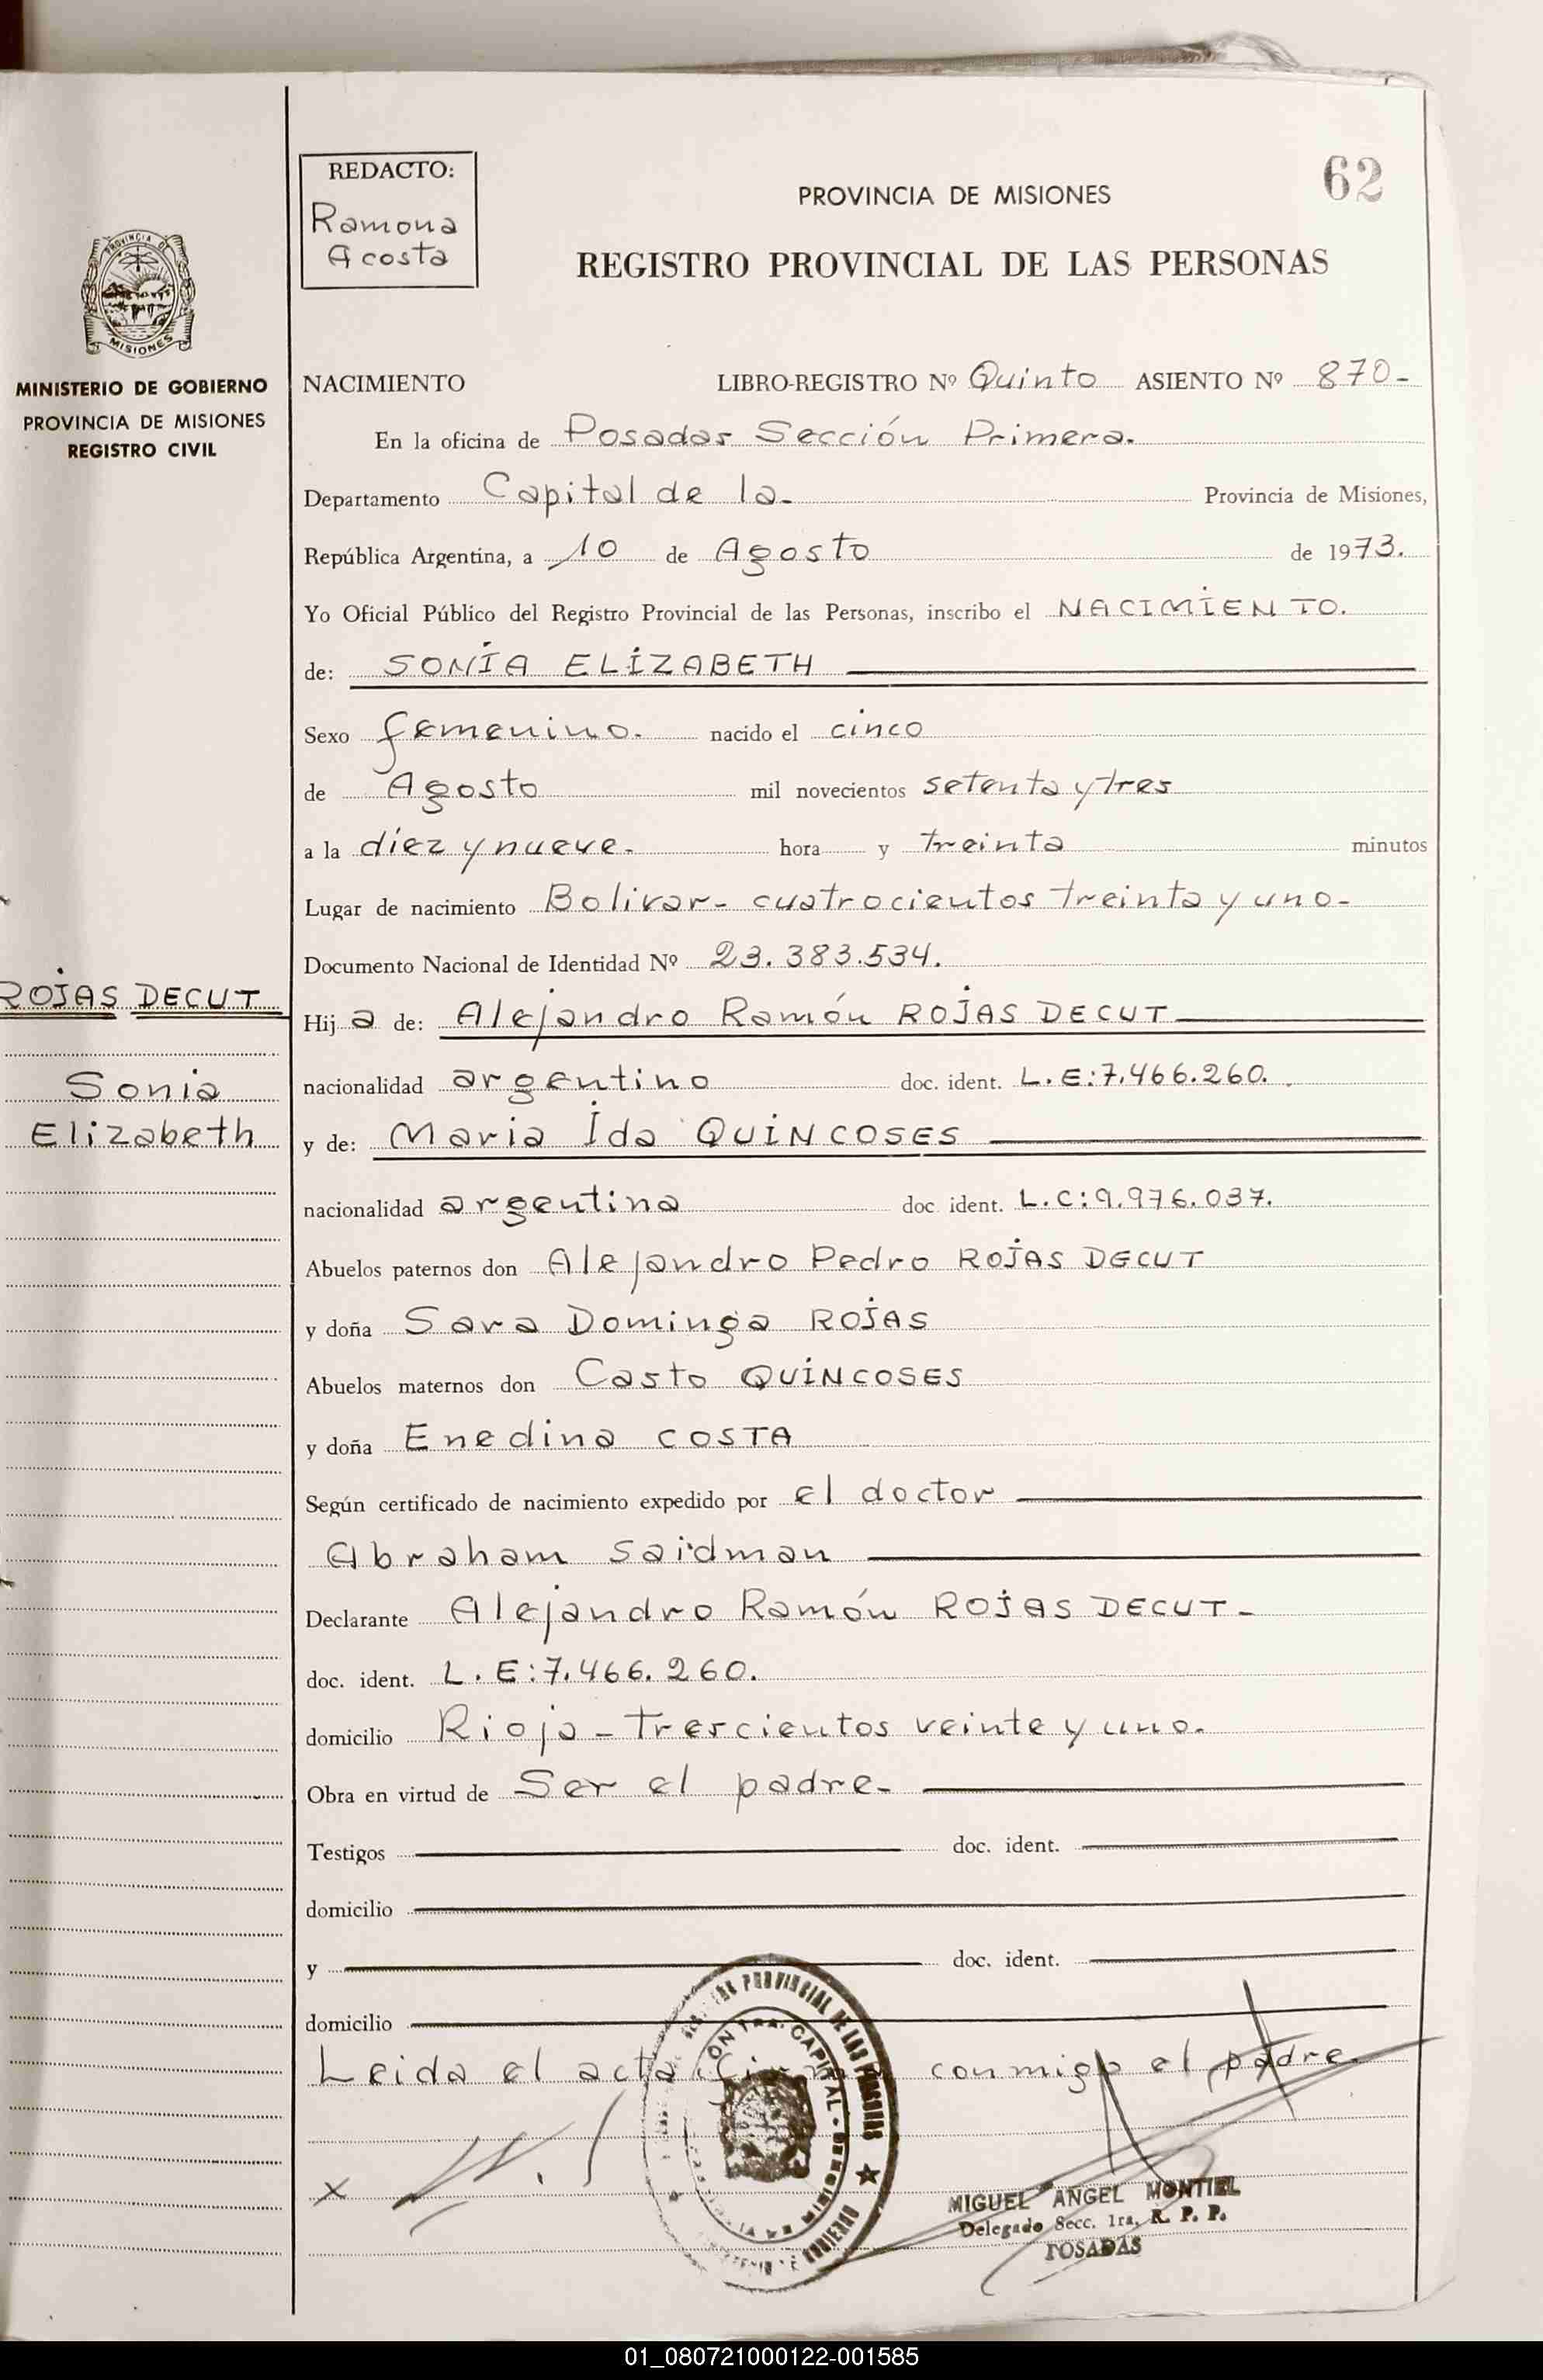 REDACTO:
Ramona
Acosta
62
PROVINCIA DE MISIONES
REGISTRO PROVINCIAL DE LAS PERSONAS
PROVINCIA DE
MISIONES
MINISTERIO DE GOBIERNO
PROVINCIA DE MISIONES
REGISTRO CIVIL
NACIMIENTO LIBRO-REGISTRO Nº Quinto ASIENTO Nº 870-
En la oficina de Posadas Sección Primera.
Departamento Capital de la- Provincia de Misiones,
República Argentina, a 10 de Agosto de 1973.
Yo Oficial Público del Registro Provincial de las Personas, inscribo el NACIMIENTO.
de: SONIA ELIZABETH
Sexo femenino. nacido el cinco
de Agosto mil novecientos setenta y tres
a la diez y nueve. hora y treinta minutos
Lugar de nacimiento Bolivar- cuatrocientos treinta y uno-
Documento Nacional de Identidad Nº 23.383.534.
ROJAS DECUT
Sonia
Elizabeth
Hij a de: Alejandro Ramón ROJAS DECUT
nacionalidad argentino doc. ident. L.E:7.466.260.
y de: Maria Ida QUINCOSES
nacionalidad argentina doc ident. L.C:9.976.037.
Abuelos paternos don Alejandro Pedro ROJAS DECUT
y doña Sara Dominga ROJAS
Abuelos maternos don Casto QUINCOSES
y doña Enedina COSTA
Según certificado de nacimiento expedido por el doctor
Abraham Saidman
Declarante Alejandro Ramón ROJAS DECUT-
doc. ident. L.E:7.466.260.
domicilio Rioja - trescientos veinte y uno.
Obra en virtud de Ser el padre-
Testigos doc. ident.
domicilio
y doc. ident.
domicilio
Leida el acta conmigo el padre.
PROVINCIAL DE LAS PERSONAS
CAPITAL
x
MIGUEL ANGEL MONTIEL
Delegado Secc. 1ra. R. P. P.
POSADAS
01_080721000122-001585